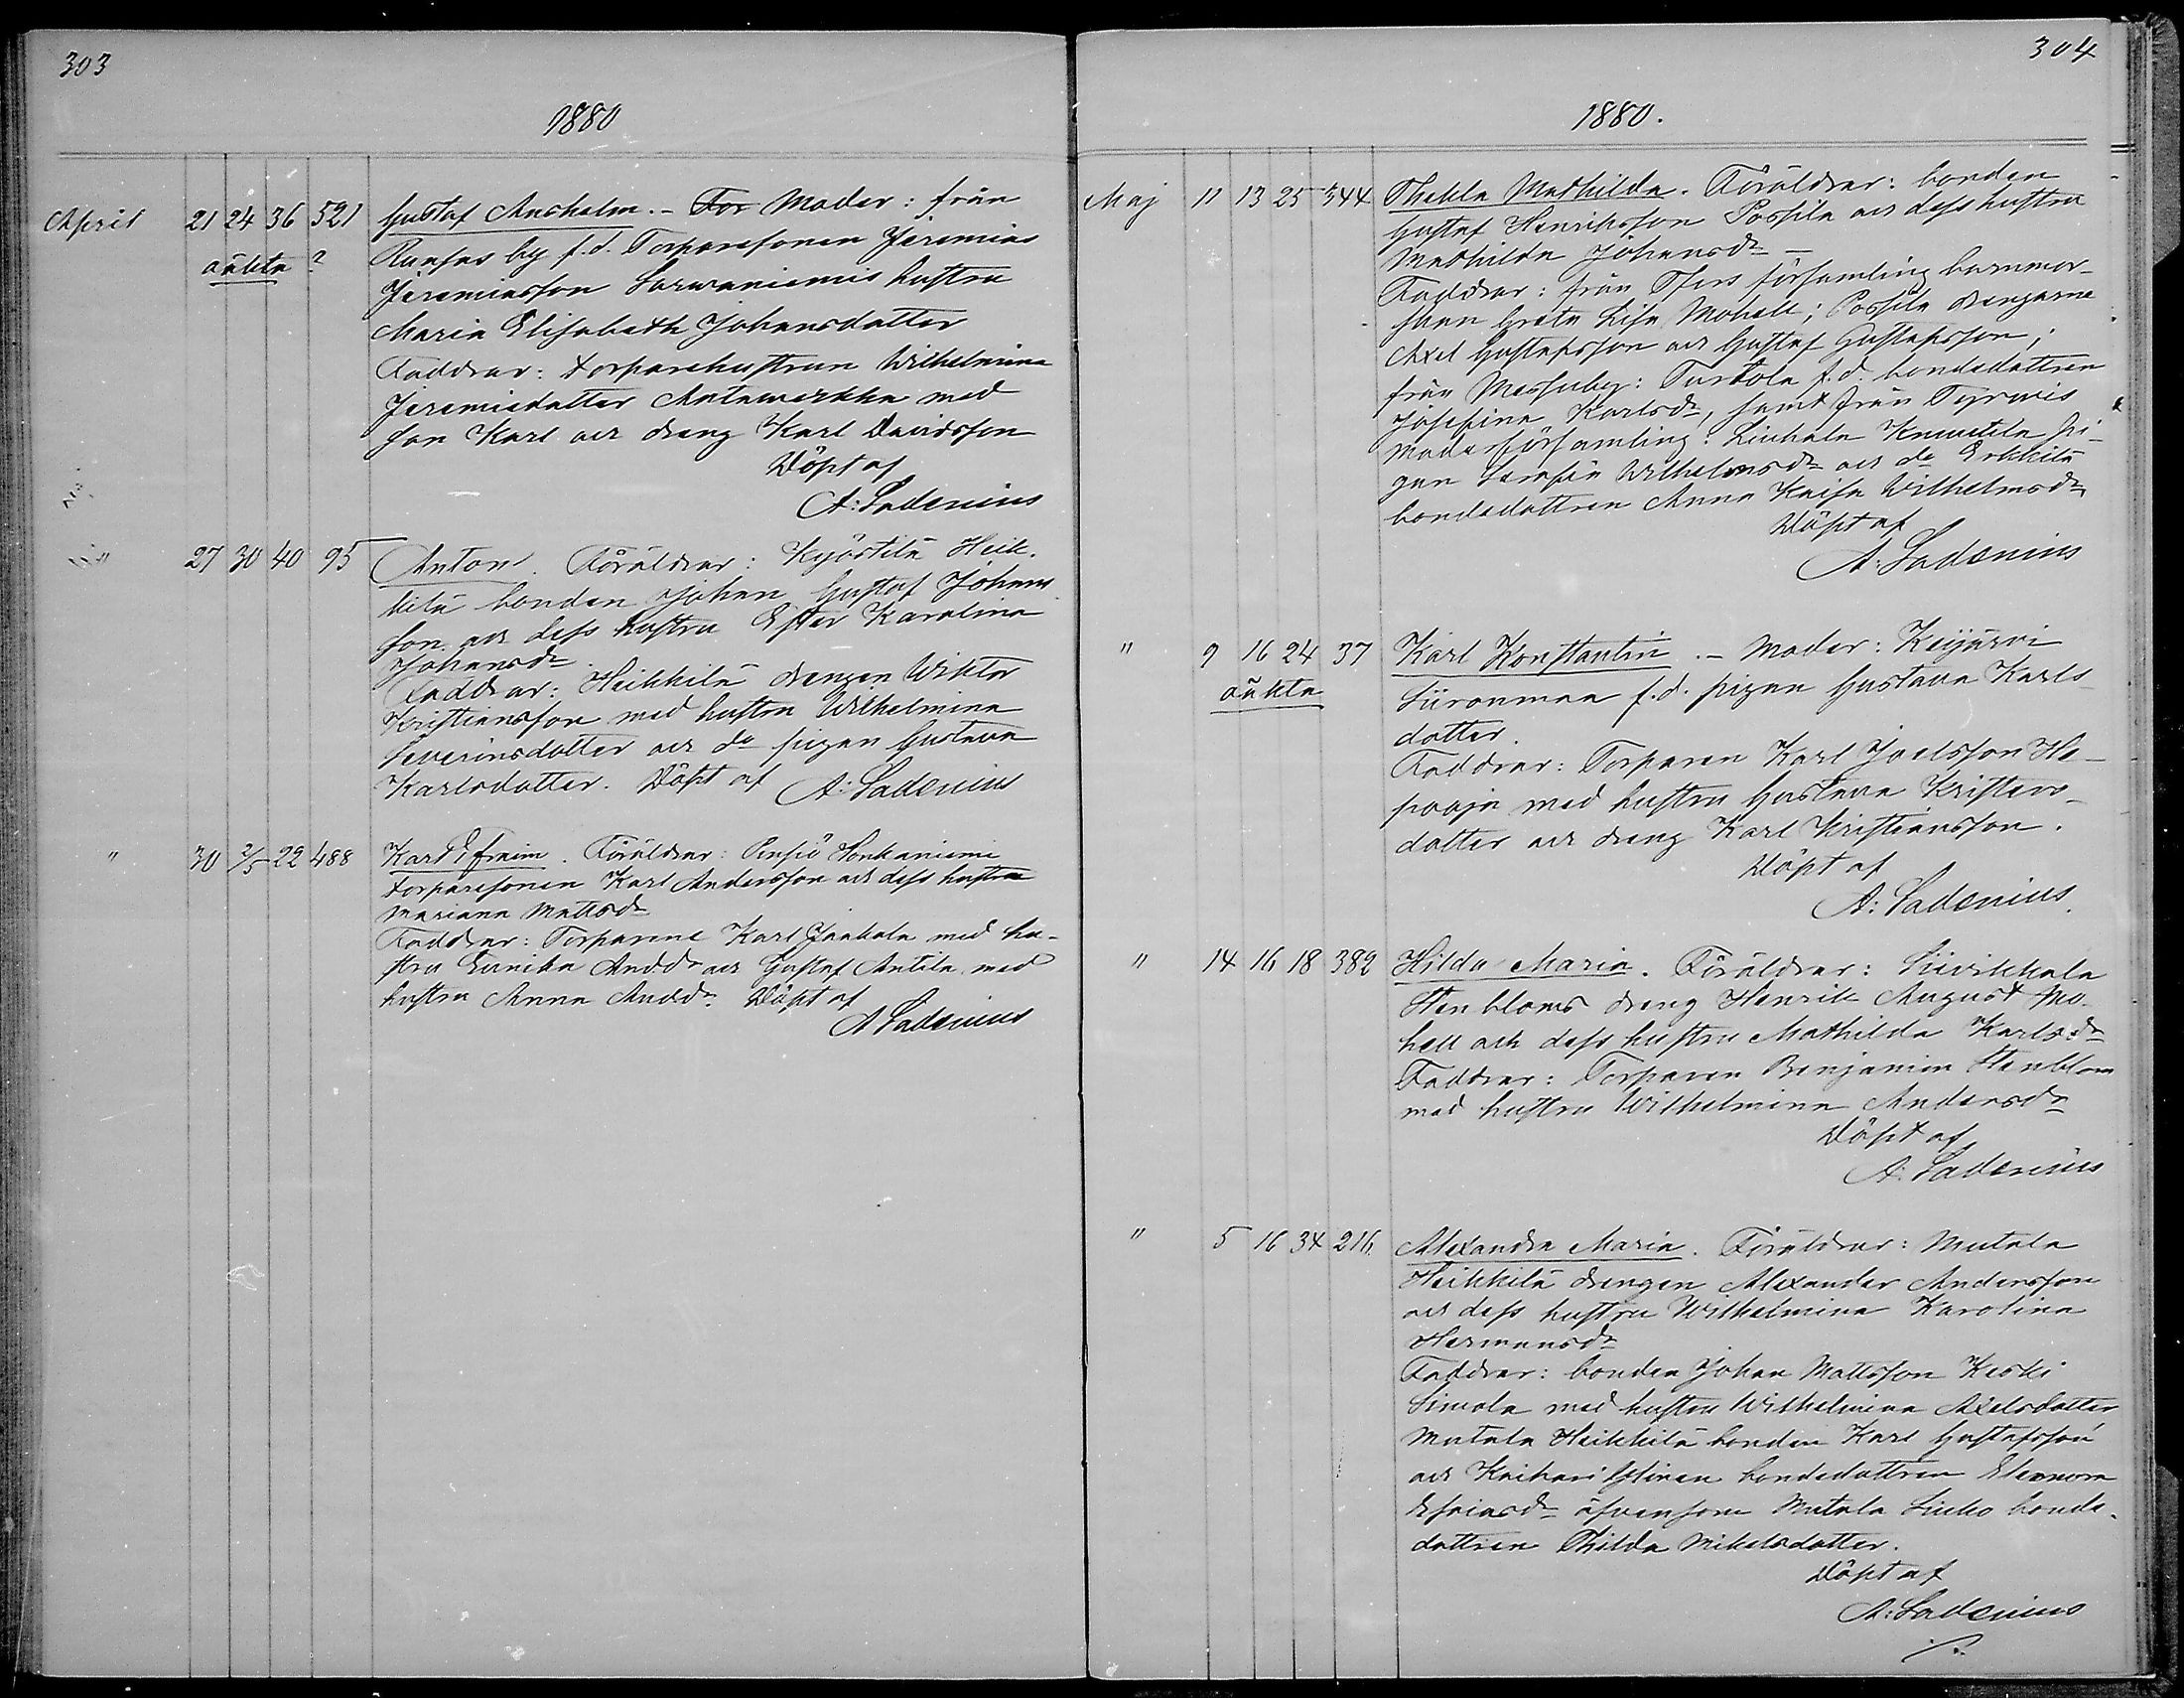 303
1880
April 21 24 36 521 Gustaf Ansholm. – For Moder: från
oäkta ? Runsas by f.d. Torparesonen Jeremias
Jeremiasson Sarvaniemis hustru
Maria Elisabeth Johansdotter
Faddrar: torparehustrun Wilhelmina
Jeremiedotter Antaverkka med
son Karl och dreng Karl Davidsson
Döpt af
A: Ladenius
" 27 30 40 95 Anton. Föräldrar: Kyöstilä Heik-
kilä bonden Johan Gustaf Johans
son och dess hustru Ester Karolina
Johansdr
Faddrar: Heikkilä drengen Wiktor
Kristiansson med hustru Wilhelmina
Severinsdotter och do pigan Gustava
Karlsdotter. Döpt af A: Ladenius
" 30 2/5 22 488 Karl Efraim. Föräldrar: Pinsiö Honkaniemi
torparesonen Karl Andersson och dess hustru
Mariana Mattsdr
Faddrar: Torparene Karl Jankala med hu-
stru Eunika Andsdr och Gustaf Antila med
hustru Anna Andsdr Döpt af
A Ladenius
304
1880.
Maj 11 13 25 344 Thekla Mathilda. Föräldrar: bonden
Gustaf Henriksson Possila och dess hustru
Mathilda Johansdr –
Faddrar: från församling barnmor-
skan Greta Lisa Mohell; Possila drengarne
Axel Gustafsson och Gustaf Gustafsson;
från Messuby: Turtola f.d. bondedottren
Josefina Karlsdr, samt från Tyrvis
Moderförsamling: Liuhala Knuutila pi-
gan Serafia Wilhelmsdr och do Erkkilä
bondedottren Anna Kaisa Wilhelmsdr
Döpt af
A: Ladenius
" 9 16 24 37 Karl Konstantin. – Moder: Keijärvi
oäkta Siironmaa f.d. pigan Gustava Karls-
dotter.
Faddrar: Torparen Karl Joelsson He-
pooja med hustru Gustava Kristers-
dotter och dreng Karl Kristiansson.
Döpt af
A: Ladenius.
" 14 16 18 382 Hilda Maria. Föräldrar: Siivikkala
Stenbloms dreng Henrik August Mo-
hell och dess hustru Mathilda Karlsdr
Faddrar: Torparen Benjamin Stenblom
med hustru Wilhelmina Andersdr
Döpt af
A. Ladenius
" 5 16 34 216. Alexandra Maria. Föräldrar: Mutala
Heikkilä drengen Alexander Andersson
och dess hustru Wilhelmina Karolina
Hermansdr
Faddrar: bonden Johan Mattsson Keski
Simola med hustru Wilhelmina Axelsdotter
Mutala Heikkilä bonden Karl Gustafsson
och Kaihari Ylinen bondedottren Eleonora
Esaiasdr äfvensom Mutala Liuko bonde-
dottren Thilda Mikelsdotter.
Döpt af
A: Ladenius